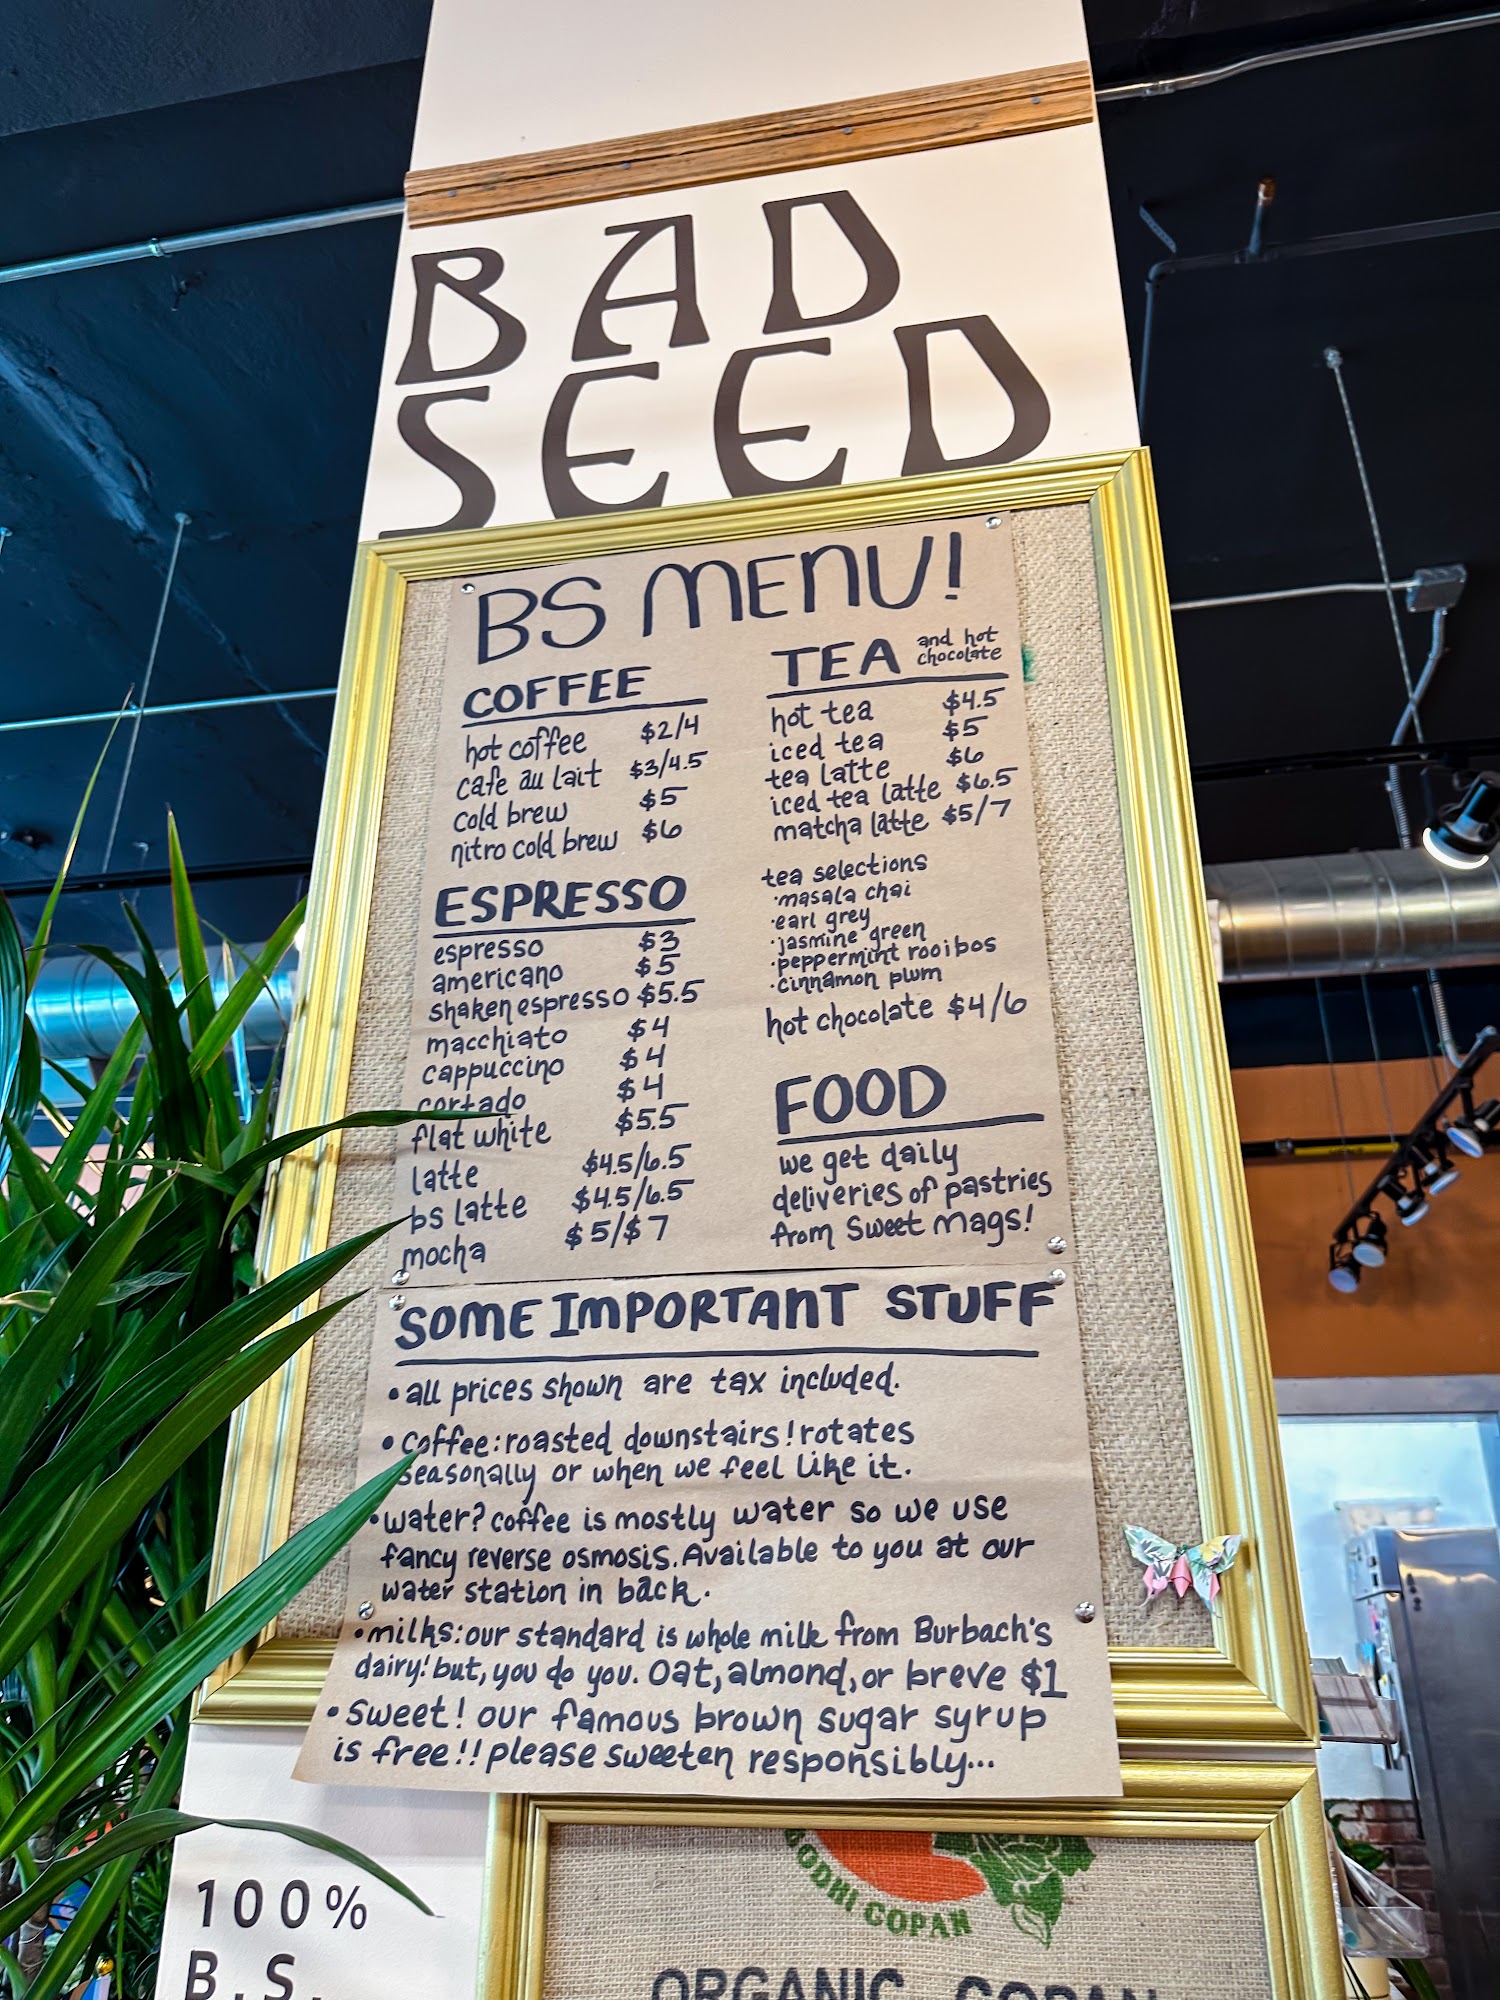 BAD
SEED
BS MENU!
COFFEE
hot coffee $2/4
cafe au lait $3/4.5
cold brew $5
nitro cold brew $6
ESPRESSO
espresso $3
americano $5
shaken espresso $5.5
macchiato $4
cappuccino $4
cortado $4
flat white $5.5
latte $4.5/6.5
bs latte $4.5/6.5
mocha $5/$7
TEA and hot
chocolate
hot tea $4.5
iced tea $5
tea latte $6
iced tea latte $6.5
matcha latte $5/7
tea selections
·masala chai
·earl grey
·jasmine green
·peppermint rooibos
·cinnamon plum
hot chocolate $4/6
FOOD
we get daily
deliveries of pastries
from Sweet Mags!
SOME IMPORTANT STUFF
• all prices shown are tax included.
• coffee: roasted downstairs! rotates
seasonally or when we feel like it.
• water? coffee is mostly water so we use
fancy reverse osmosis. Available to you at our
water station in back.
• milks: our standard is whole milk from Burbach's
dairy! but, you do you. Oat, almond, or breve $1
• Sweet! our famous brown sugar syrup
is free!! please sweeten responsibly...
100%
B.S.
COPAN
ORGANIC COPAN